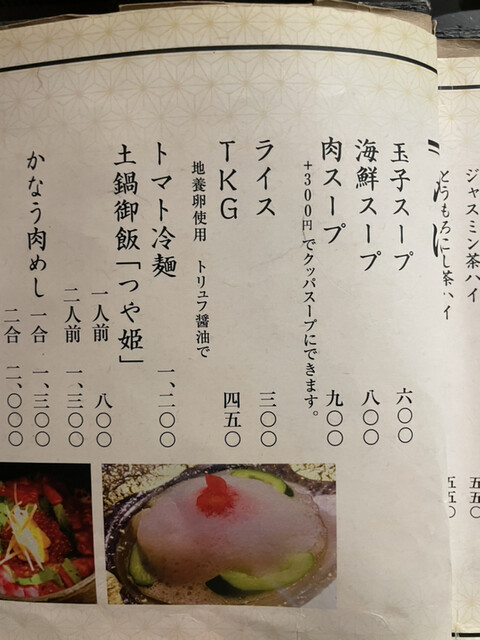 ジャスミン茶ハイ 五五〇
とうもろこし茶ハイ 五五〇
玉子スープ 六〇〇
海鮮スープ 八〇〇
肉スープ 九〇〇
+300円でクッパスープにできます。
ライス 三〇〇
TKG 四五〇
地養卵使用 トリュフ醤油で
トマト冷麺 一、二〇〇
土鍋御飯「つや姫」
一人前 八〇〇
二人前 一、三〇〇
かなう肉めし 一合 一、三〇〇
二合 二、〇〇〇